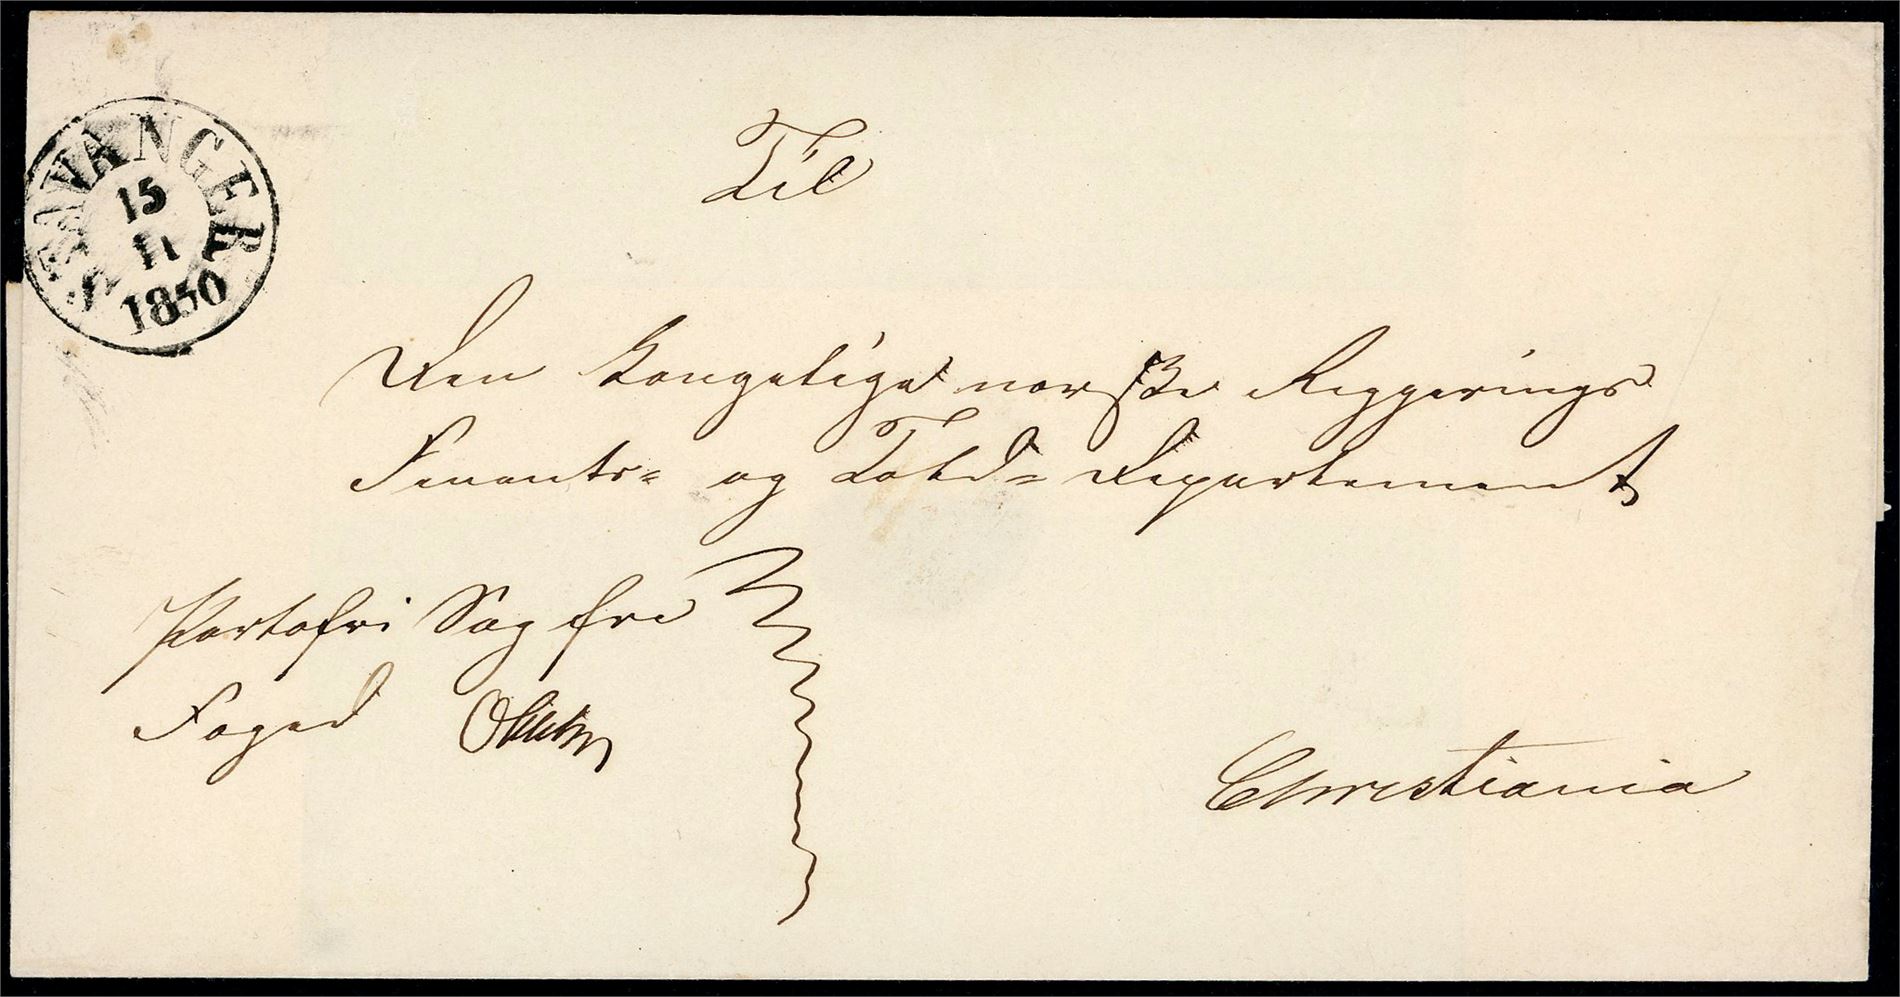 STAVANGER
15
11
1850
Til
Den Kongelige norske Regjerings
Finants= og Told= Departement
Portofri Sag fra
Foged
Christiania